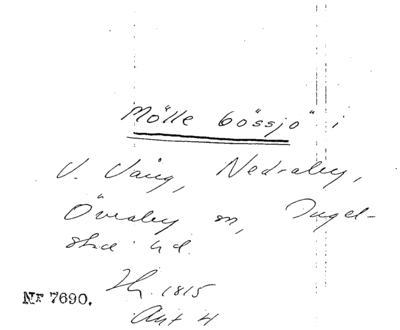 Mölle bössjö i
V. Vång, Nedraby,
Övraby sn, Ingel-
stad hd.
Hy. 1815
Ant 4
Nr 7690.